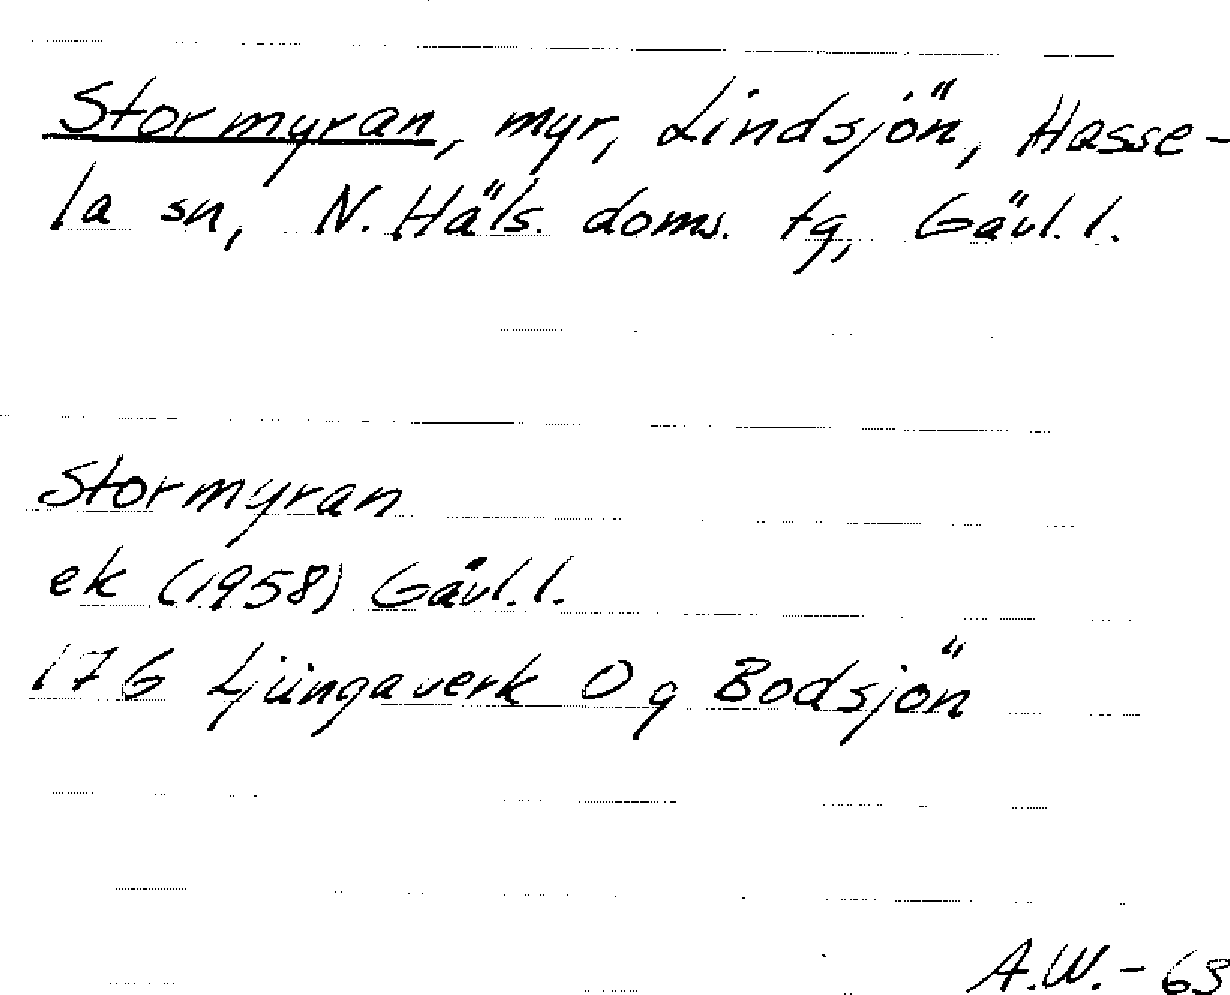 Stormyran, myr, Lindsjön, Hasse-
la sn, N. Häls. doms. tg, Gävl. l.
Stormyran
ek (1958) Gävl. l.
176 Ljungaverk Og Bodsjön
A.W. - 63